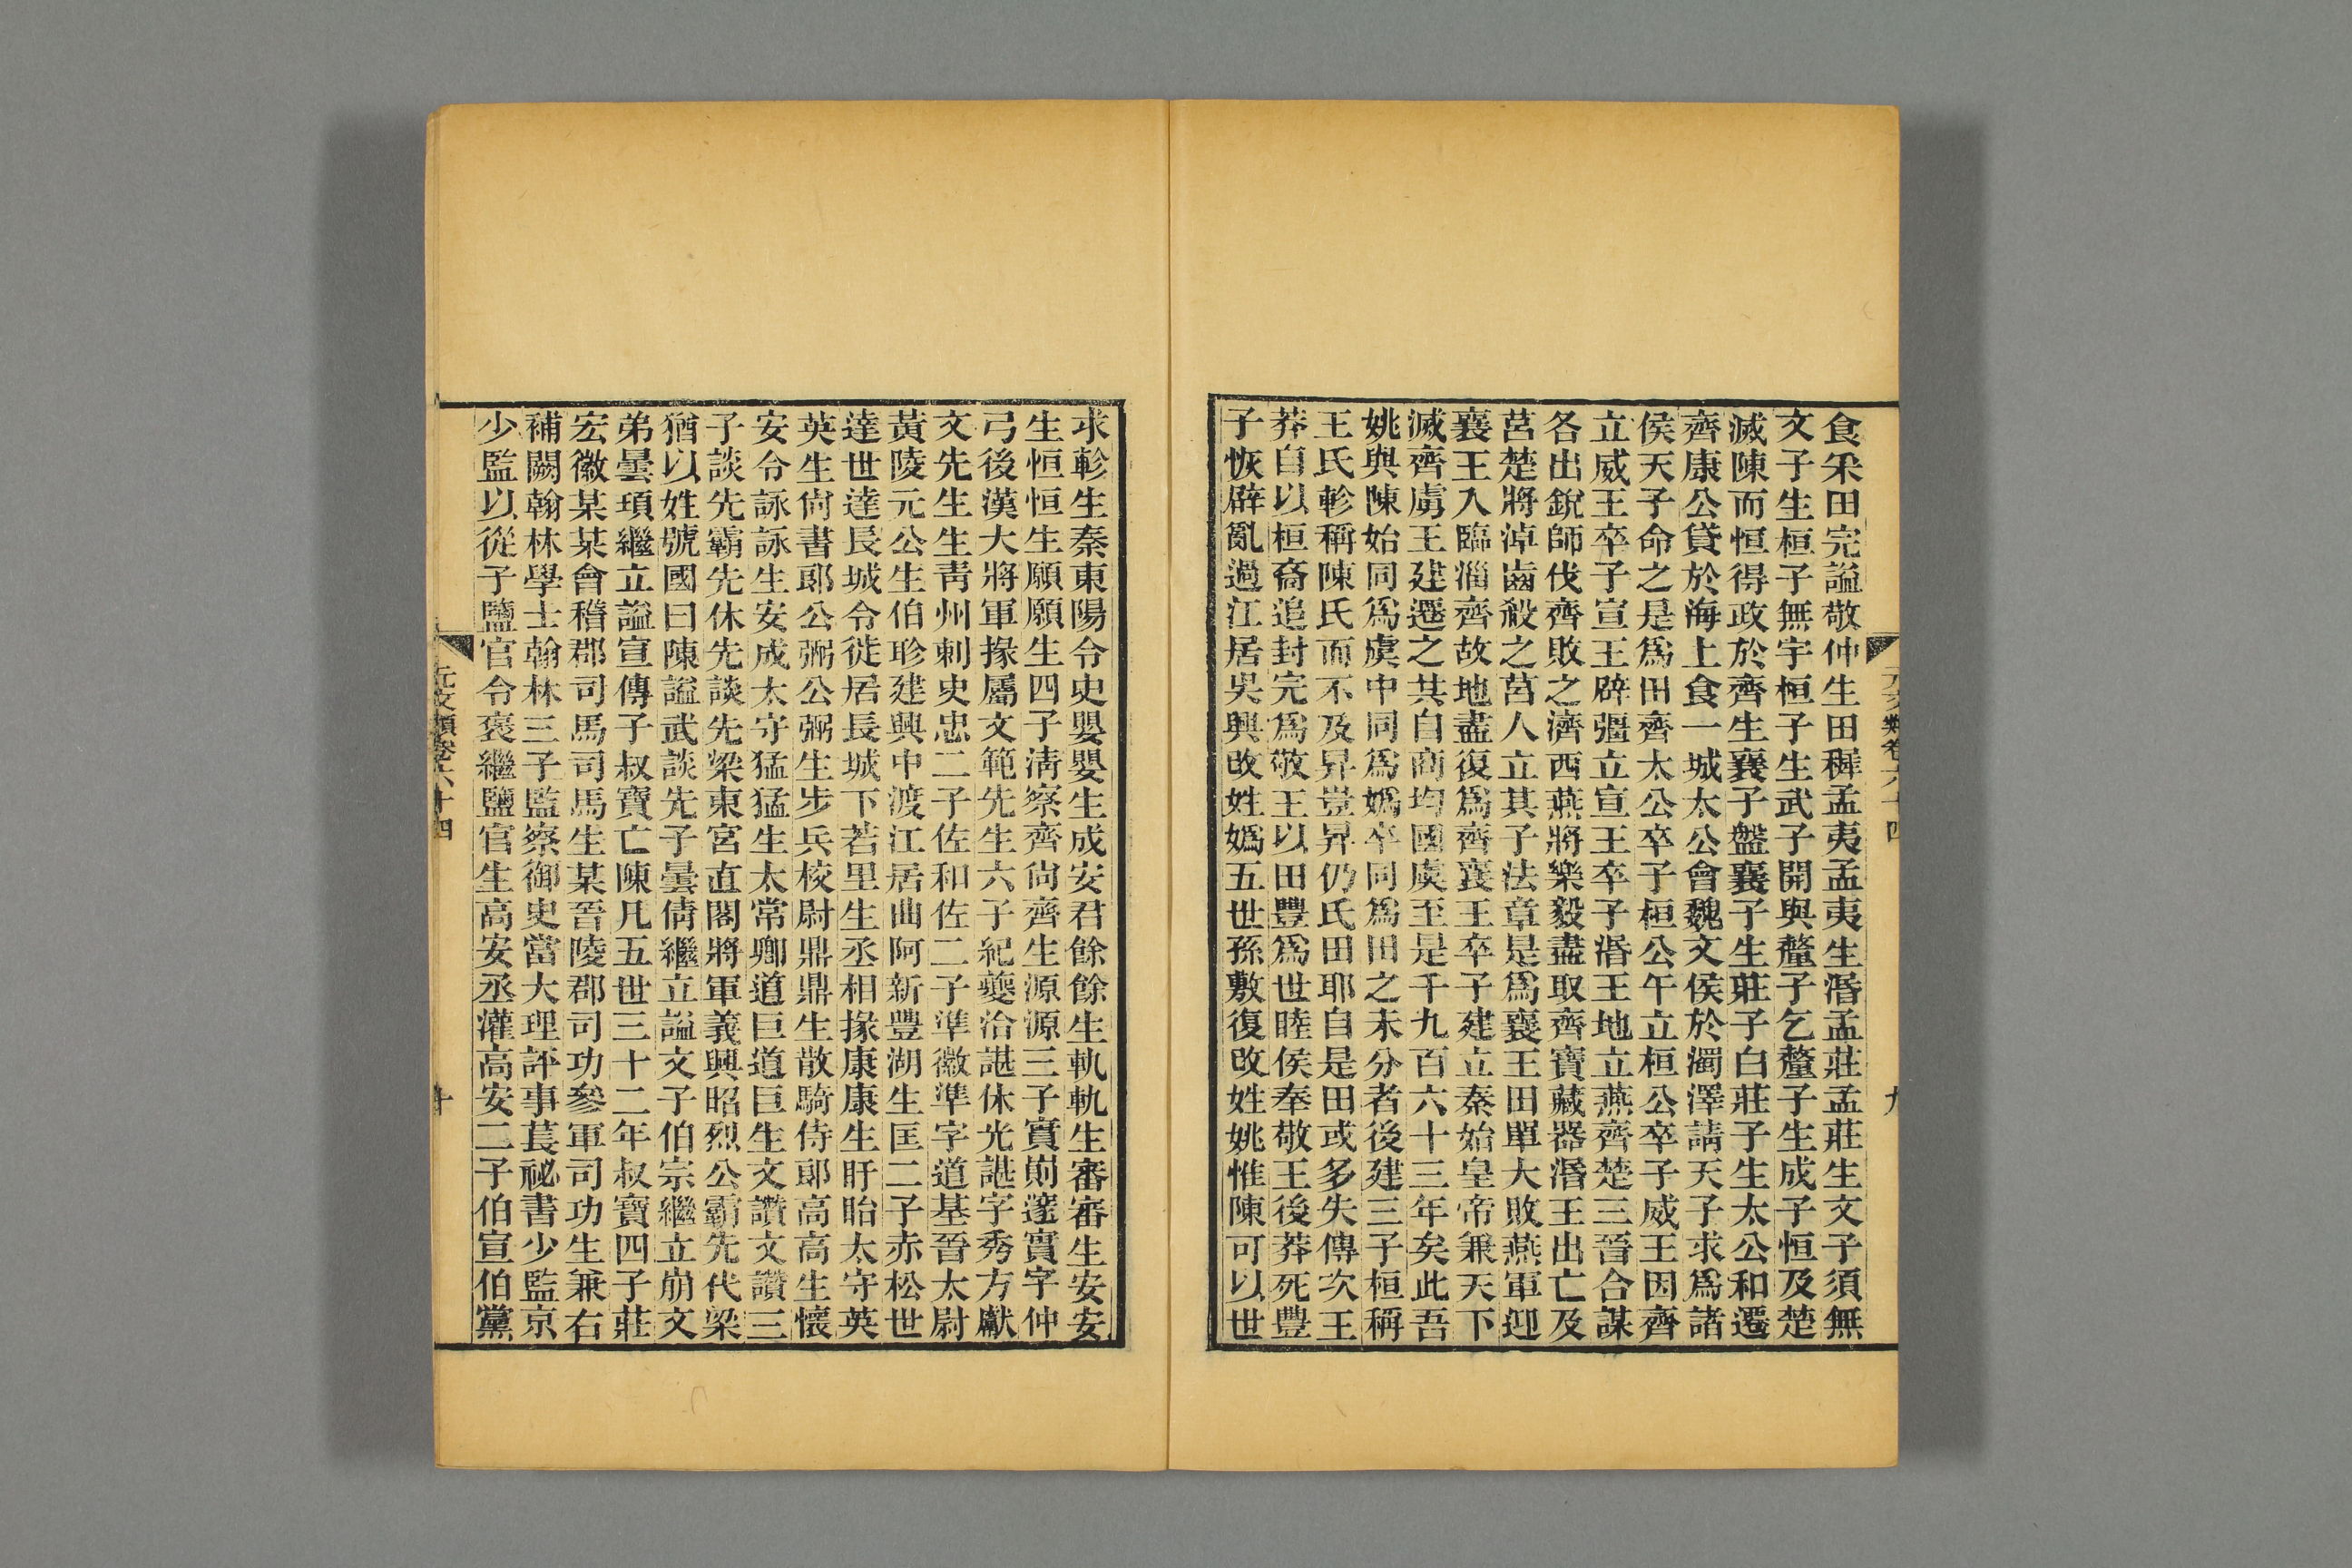 元文類卷六十四
九
食采田完謚敬仲生田穉孟夷孟夷生湣孟莊孟莊生文子須無
文子生桓子無宇桓子生武子開與釐子乞釐子生成子恒及楚
滅陳而恒得政於齊生襄子盤襄子生莊子白莊子生太公和遷
齊康公貸於海上食一城太公會魏文侯於濁澤請天子求爲諸
侯天子命之是爲田齊太公卒子桓公午立桓公卒子威王因齊
立威王卒子宣王辟彊立宣王卒子湣王地立燕齊楚三晉合謀
各出銳師伐齊敗之濟西燕將樂毅盡取齊寶藏器湣王出亡及
莒楚將淖齒殺之莒人立其子法章是爲襄王田單大敗燕軍迎
襄王入臨淄齊故地盡復爲齊襄王卒子建立秦始皇帝兼天下
滅齊虜王建遷之共自商均國虞至是千九百六十三年矣此吾
姚與陳始同爲虞中同爲嬀卒同爲田之未分者後建三子桓稱
王氏軫稱陳氏而不及昇豈昇仍氏田耶自是田或多失傳次王
莽自以桓裔追封完爲敬王以田豐爲世睦侯奉敬王後莽死豐
子恢辟亂過江居吳興改姓嬀五世孫敷復改姓姚惟陳可以世
求軫生秦東陽令史嬰嬰生成安君餘餘生軌軌生審審生安安
生恒恒生願願生四子淸察齊尙齊生源源三子實崱邃實字仲
弓後漢大將軍掾屬文範先生六子紀夔洽諶休光諶字秀方獻
文先生生靑州刺史忠二子佐和佐二子準徽準字道基晉太尉
黃陵元公生伯眕建興中渡江居曲阿新豐湖生匡二子赤松世
達世達長城令徙居長城下若里生丞相掾康康生盱眙太守英
英生尙書郞公弼公弼生步兵校尉鼎鼎生散騎侍郞高高生懷
安令詠詠生安成太守猛猛生太常卿道巨道巨生文讚文讚三
子談先霸先休先談先梁東宮直閣將軍義興昭烈公霸先代梁
猶以姓號國曰陳謚武談先子曇倩繼立謚文子伯宗繼立崩文
弟曇頊繼立謚宣傳子叔寶亡陳凡五世三十二年叔寶四子莊
宏徽某某會稽郡司馬司馬生某晉陵郡司功參軍司功生兼右
補闕翰林學士翰林三子監察御史當大理評事萇祕書少監京
少監以從子鹽官令褒繼鹽官生高安丞灌高安二子伯宣伯黨
元文類卷六十四
十